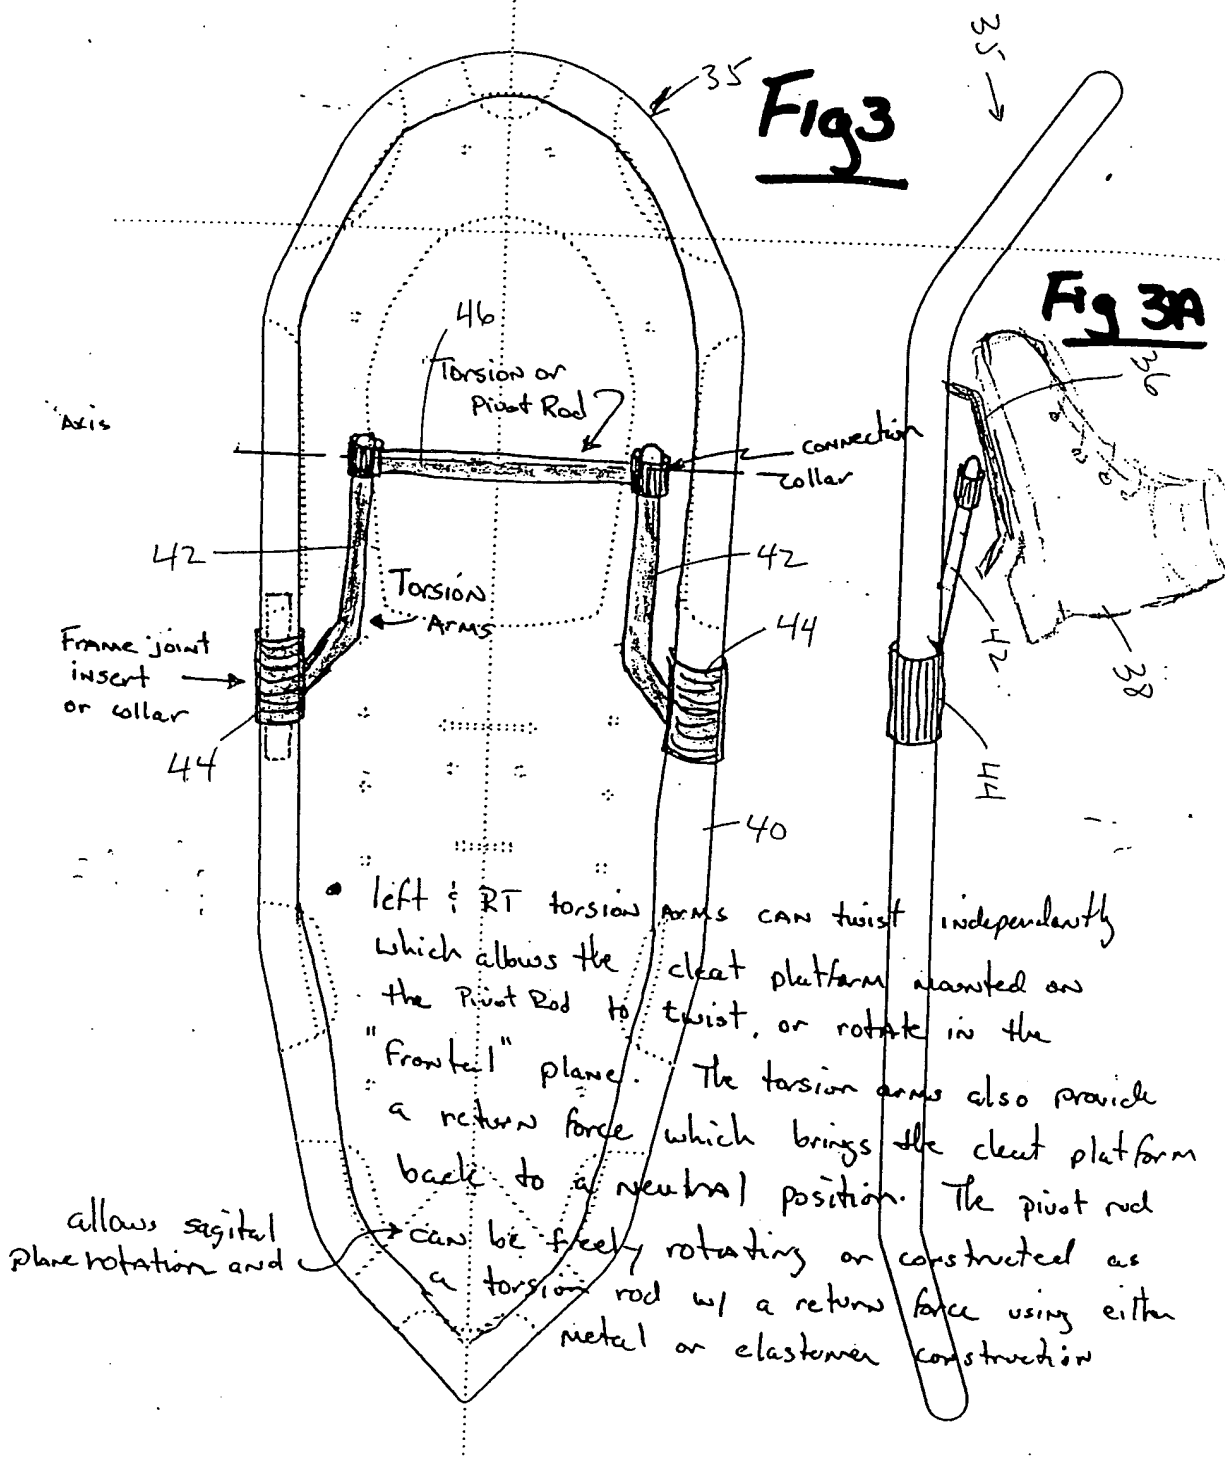 35
Fig 3
35
Fig 3A
36
46
Torsion or
Pivot Rod
Axis
connection
collar
42
42
Torsion
Arms
44
Frame joint
insert
or collar
44
42
38
44
40
• left & RT torsion Arms CAN twist independantly
which allows the cleat platform mounted on
the Pivot Rod to twist, or rotate in the
"Frontal" plane. The torsion arms also provide
a return force which brings the cleat platform
back to a neutral position. The pivot rod
allows sagital
plane rotation and
can be freely rotating or constructed as
a torsion rod w/ a return force using either
metal or elastomer construction